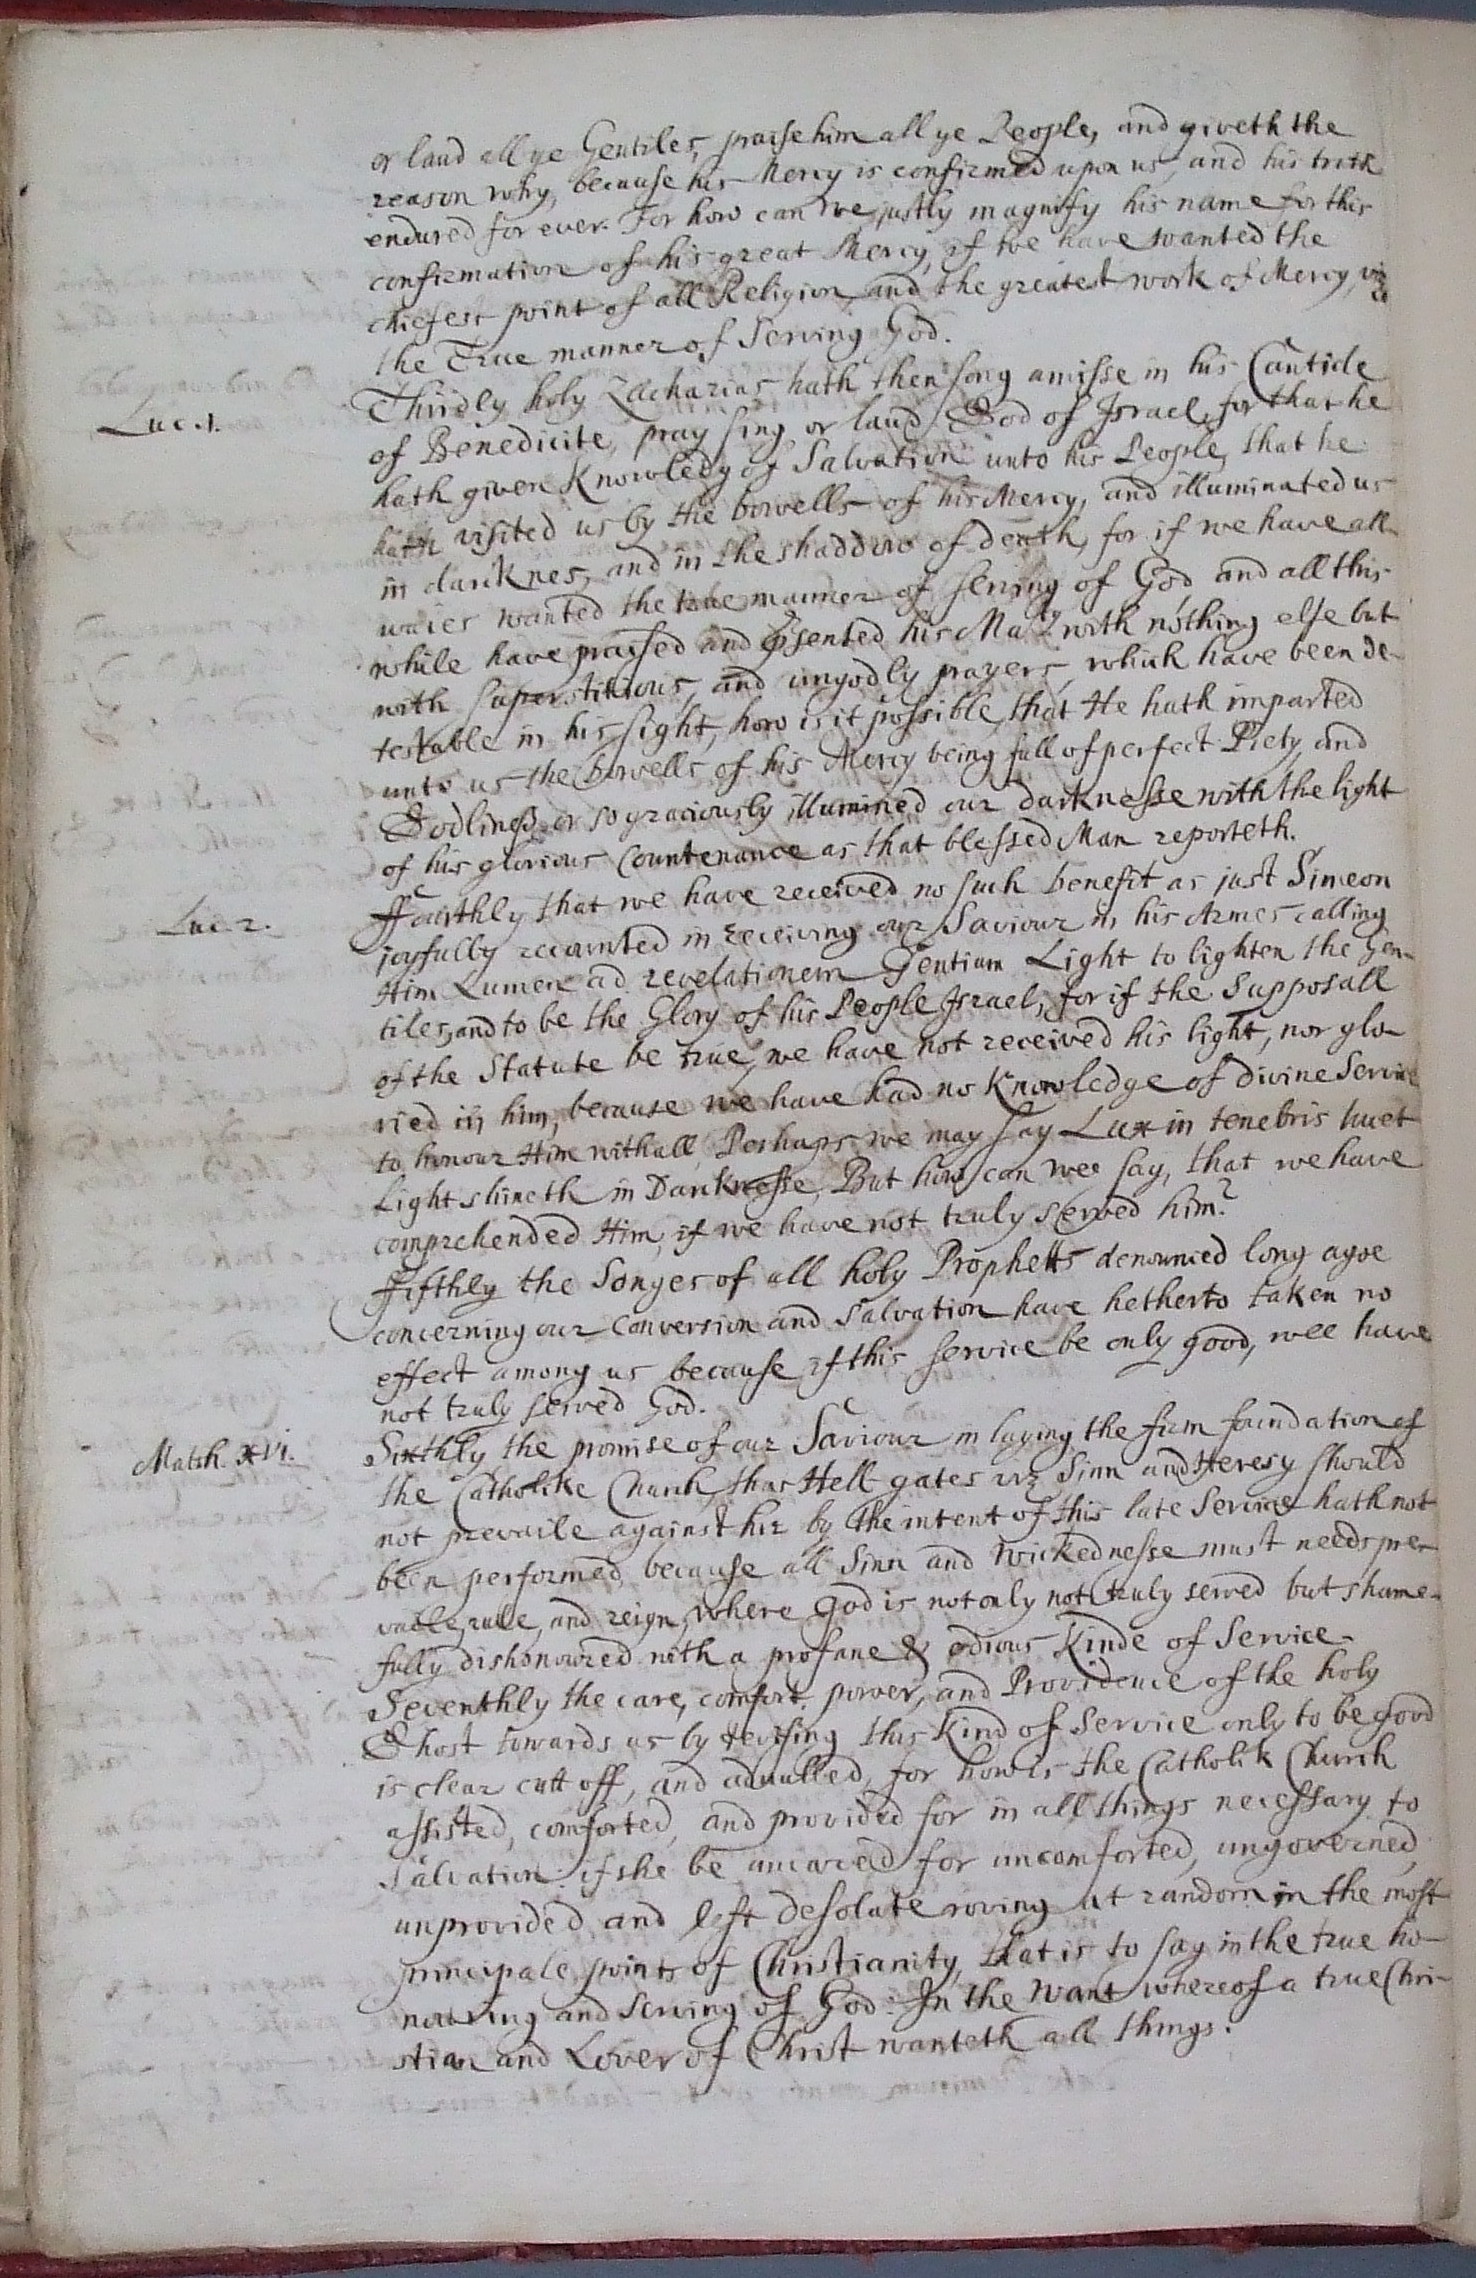 or laud all ye Gentiles, praise him all ye People, and giveth the
reason why, because his Mercy is confirmed upon us, and his truth
endured for ever. For how can we justly magnify his name for this
confirmation of his great Mercy, if we have wanted the
chiefest point of all Religion, and the greatest work of Mercy, viz
the True manner of Serving God.
Luc. 1.
Thirdly holy Zacharias hath then song amisse in his Canticle
of Benedicite, pray sing or laud God of Israel, for that he
hath given Knowledg of Salvation unto his People, that he
hath visited us by the bowells of his Mercy, and illuminated us
in darknes, and in the shaddow of death, for if we have all
waies wanted the true manner of serving of God, and all this
while have praised and p̱sented his Maty with nothing else but
with superstitious, and ungodly prayers, which have been de-
testable in his sight, how is it possible, that He hath imparted
unto us the bowells of his Mercy being full of perfect Piety, and
Godliness or so graciously illumined our darknesse with the light
of his glorious Countenance as that blessed Man reporteth.
Luc. 2.
Fourthly that we have received no such benefit as just Simeon
joyfully recounted in receiving our Saviour in his Armes calling
Him Lumen ad revelationem Gentium Light to lighten the Gen-
tiles, and to be the Glory of his People Israel, for if the Supposall
of the Statute be true, we have not received his light, nor glo-
ried in him, because we have had no Knowledge of divine Service
to honour Him withall, Perhaps we may say Lux in tenebris lucet
Light shineth in Darknesse, But how can wee say, that we have
comprehended Him, if we have not truly served him?
Fifthly the Songes of all holy Prophetts denounced long agoe
concerning our Conversion and Salvation have hetherto taken no
effect among us because if this service be only good, wee have
not truly served God.
Matth. xvi.
Sixthly the promise of our Saviour in laying the firm foundation of
the Catholike Church, that Hell gates viz Sinn and Heresy should
not prevaile against her by the intent of this late Service hath not
been performed, because all Sinn and wickednesse must needs pre-
vaile, rule, and reign, where God is not only not truly served but shame-
fully dishonoured with a profane & odious Kinde of Service.
Seventhly the care, comfort, power, and Providence of the holy
Ghost towards us by devising this Kind of Service only to be good
is clear cutt off, and adnulled, for how is the Catholik Church
assisted, comforted, and provided for in all things necessary to
Salvation if she be uncared for uncomforted, ungoverned,
unprovided and left desolate roving at random in the most
principale points of Christianity, that is to say in the true ho-
nouring and serving of God: In the want whereof a true Chri-
stian and Lover of Christ wanteth all things.